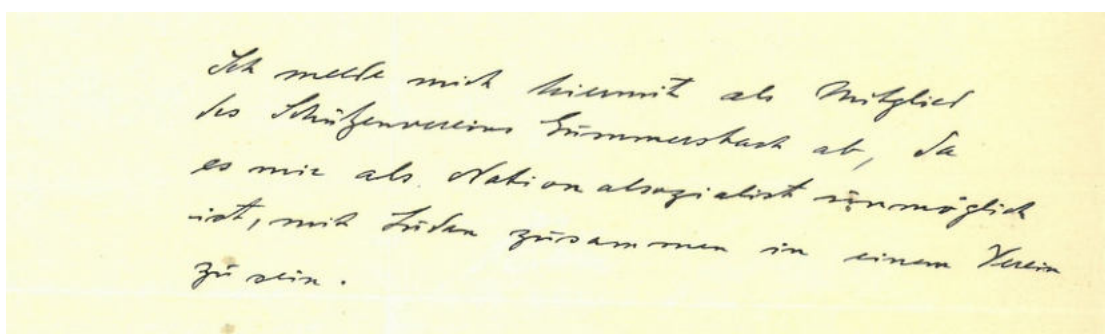 Ich melde mich hiermit als Mitglied
des Schützenvereins Gummersbach ab, da
es mir als Nationalsozialist unmöglich
ist, mit Juden zusammen in einem Verein
zu sein.